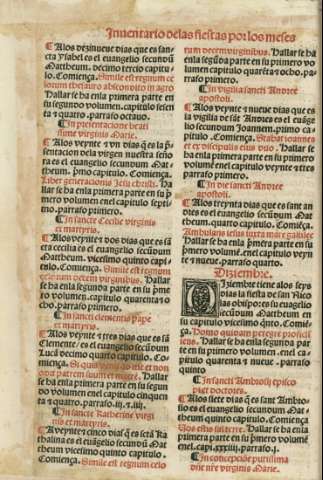 Inuentario delas fiestas por los meses
¶ Alos dezinueue dias que es san-
cta ysabel es el euangelio secundũ
Mattheum. decimo tercio capitu-
lo. Comiença. Simile est regnum ce
lorum thesauro abscondito in agro
Hallar se ha enla primera parte en
su segundo volumen. capitulo sesen
ta y quatro. parrafo octauo.
¶ In presentatione beati
ssime virginis Marie.
¶ Alos veynte y vn dias q̃ es la p̃-
sentacion dela virgen nuestra seño
ra es el euangelio secundum Mat-
theum. p̃mo capitulo. Comiença.
Liber generationis iesu christi. Ha
llar se ha enla primera parte en su p̃
mero volumen enel capitulo septi-
mo. parrafo primero.
¶ In sancte Cecilie virginis
et martyris.
¶ Alos veynte y dos dias que es sã
cta cecilia es el euangelio secundum
Mattheum. vicesimo quinto capi-
tulo. Comiença. Simile est regnum
celorum decem virginibus. Hallar se
ha enla segunda parte en su prime
ro volumen. capitulo quarenta y o
cho. parrafo primero.
¶ In sancti clementis pape
et martyris.
¶ Alos veynte y tres dias que es sã
Clemente / es el euangelio secundum
Luca decimo quarto capitulo. Co-
miença. Si quis venit ad me et non
odit patrem suum et matrem. Hallar se
ha enla primera parte en su segun
do volumen enel capitulo cinquen
ta y quatro. parrafo .iij. y .iiij.
¶ In sancte Katherine virgi
nis et martyris.
¶ A veynte y cinco dias q̃ es sctã Ka
thalina es el euãgelio secundũ Mat
theum vicesimo quinto capitulo.
Comiença. Simile est regnum celo
rum decem virginibus. Hallar se ha
enla segũda parte en su primero vo
lumen capitulo quarẽta y ocho. pa-
rrafo primero.
¶ In vigilia sancti Andree
apostoli.
¶ Alos veynte y nueue dias que es
la vigilia de sãt Andres es el euãge
lio secundum Joannem. primo ca-
pitulo. Comiença. Stabat joannes
et ex discipulis eius duo. Hallar se
ha enla primera parte en su primero
volumen enel capitulo veynte y tres
parrafo primero.
¶ In die sancti Andree
apostoli.
¶ Alos treynta dias que es sant an
dres es el euangelio secũdum Mat-
theum. quarto capitulo. Comiẽça.
Ambulans iesus iuxta mare galilee
Hallar se ha enla p̃mera parte en su
p̃mero volumen. enel capitulo veyn
te y nueue. parrafo quarto.
Diziembre.
Diziembre tiene alos seys
dias la fiesta de san Nico
las obispo es su euangelio
secundum Mattheum en
su capitulo vicesimo q̃nto. Comiẽ-
ça. Homo quidam peregre proficis
cens. Hallar se ha enla segunda par
te en su primero volumen .enel ca-
pitulo quarenta y nueue . parrafo
quinto
¶ In sancti Ambrosij episco
pi et doctoris.
¶ Alos siete dias q̃ es sant Ambro-
sio es el euangelio secundũ Mat
theum quinto capitulo. Comiença
Vos estis sal terre. Hallar se ha enla
primera parte en su p̃mero volumẽ
enel .capi.xxxiij. parrafo .j.
¶ In conceptione purissima
virginis Marie.